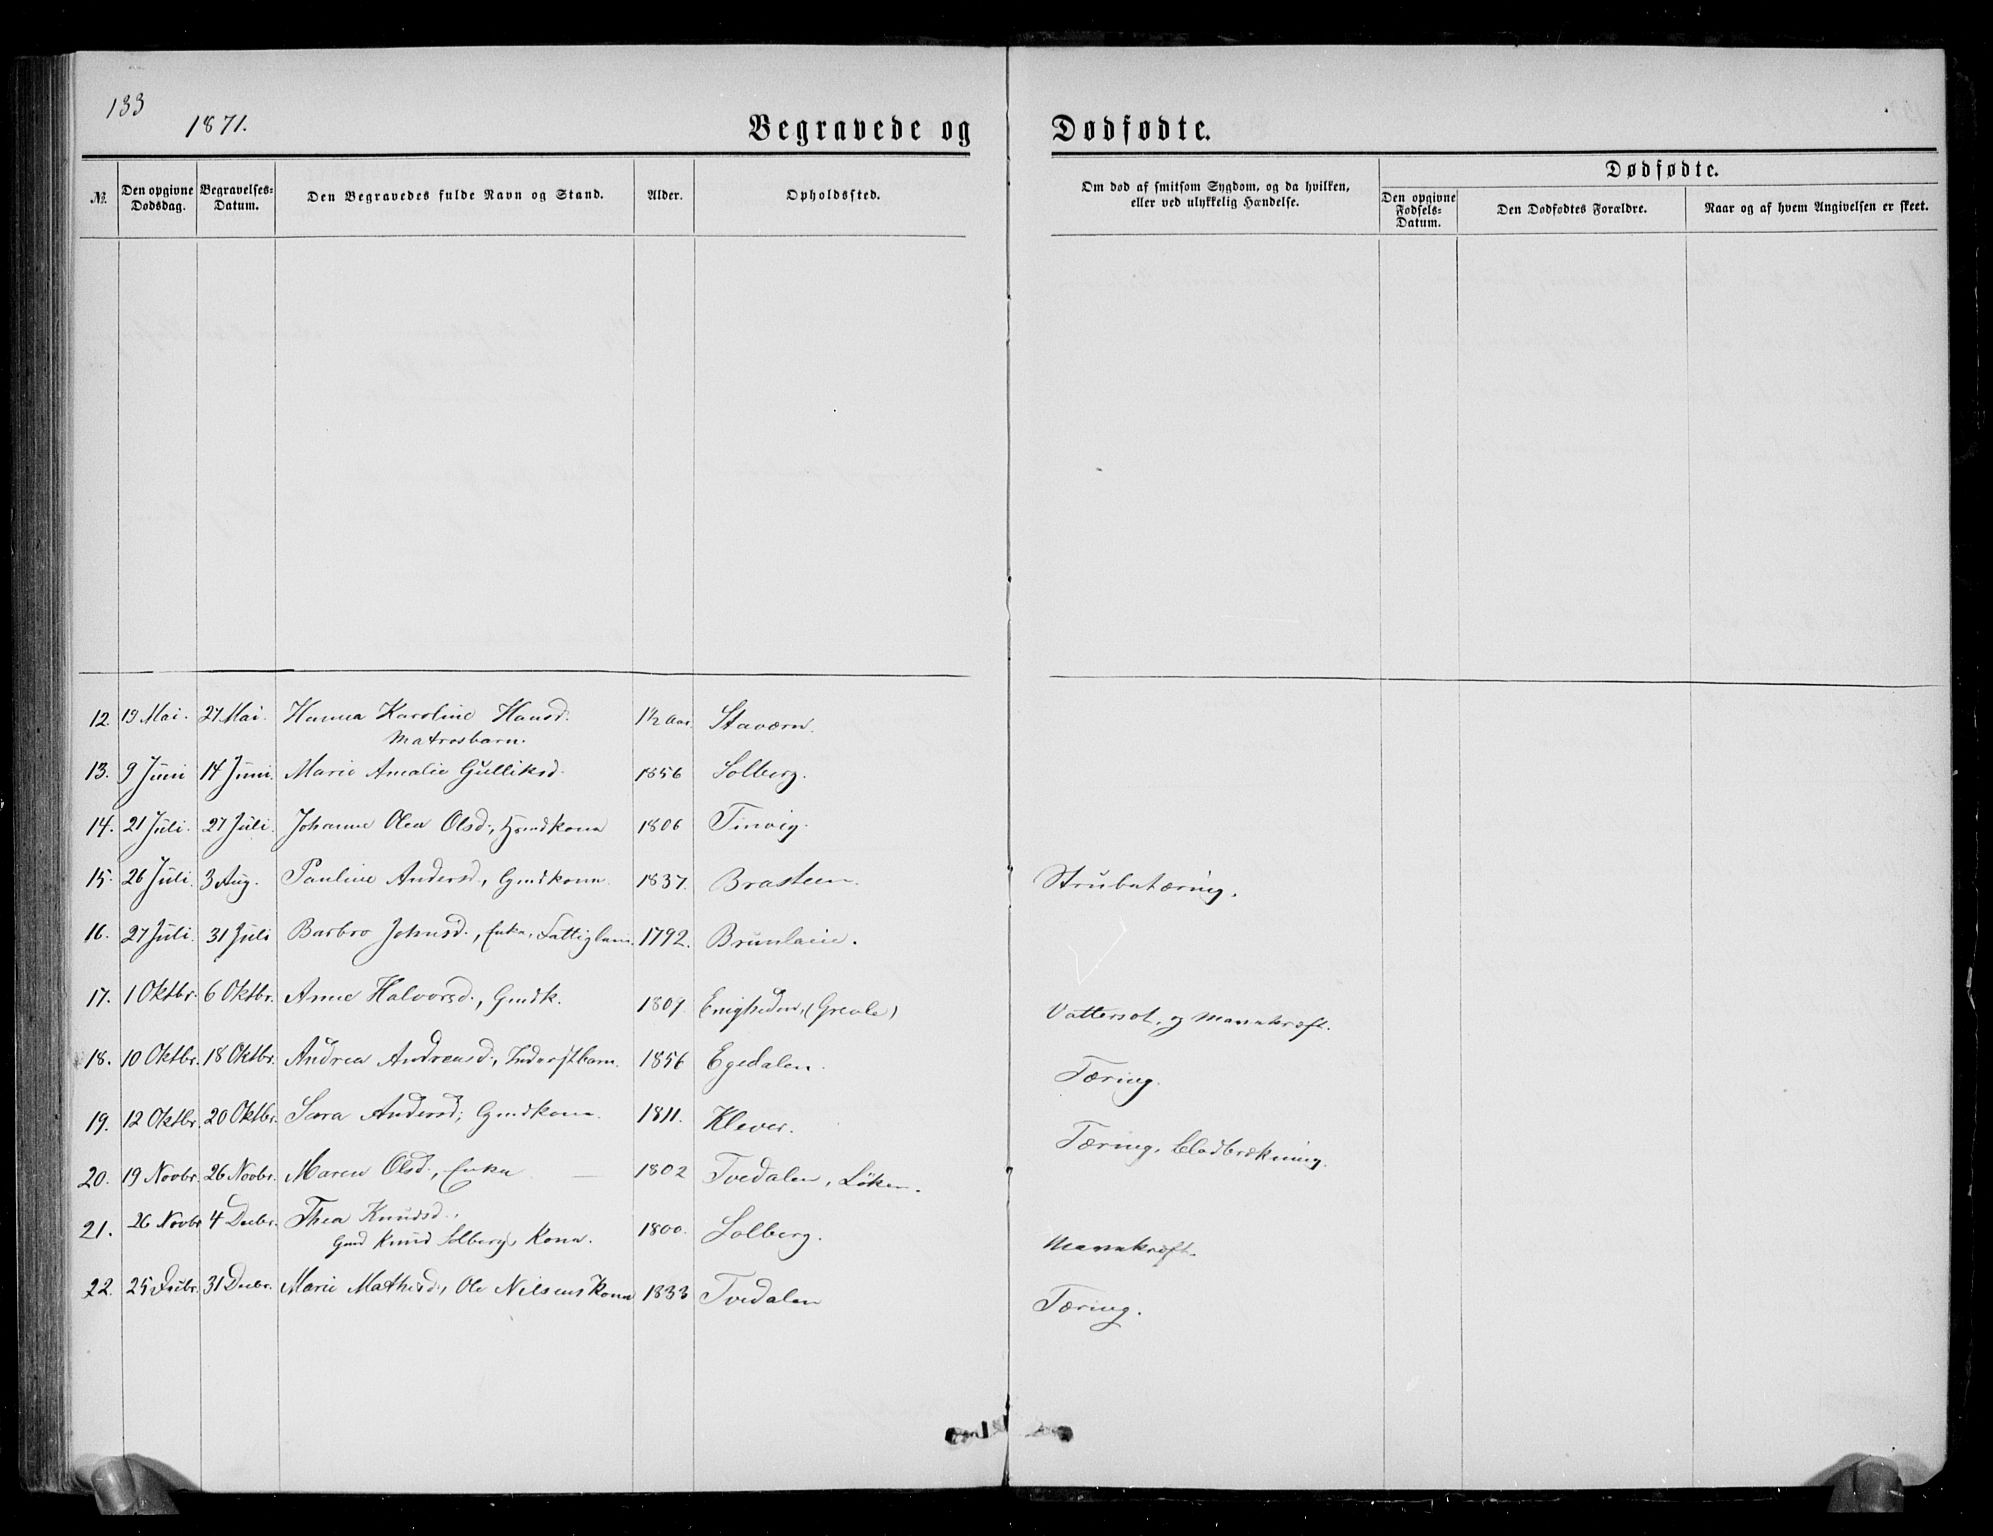 133
1871.
Begravede og Dødfødte.
№. Den opgivne Dødsdag. Begravelses-Datum. Den Begravedes fulde Navn og Stand. Alder. Opholdssted. Om død af smitsom Sygdom, og da hvilken, eller ved ulykkelig Hændelse. Dødfødte.
Den opgivne Fødsels-Datum. Den Dødfødtes Forældre. Naar og af hvem Angivelsen er skeet.
12. 19 Mai. 27 Mai. Hanna Karoline Hansd. 1½ Aar. Staværn.
Matrosbarn.
13. 9 Juni 14 Juni. Marie Amalie Gulliksd. 1856 Solberg.
14. 21 Juli. 27 Juli. Johanne Olea Olsd., Gmdkona 1806 Tinvig.
15. 26 Juli. 3 Aug. Pauline Andersd., Gmdkona. 1837. Brasteen. Strubetæring.
16. 27 Juli. 31 Juli Barbro Johnsd., Enke, Fattiglem. 1792. Brunlanie.
17. 1 Oktbr. 6 Oktbr. Anne Halvorsd., Gmdk. 1809. Enigheden, (Greole) Vattersot, og Mavekræft.
18. 10 Oktbr. 18 Oktbr. Andrea Andreasd., Inderstbarn. 1856 Egedalen. Tæring.
19. 12 Oktbr. 20 Oktbr. Sara Andersd., Gmdkona. 1811. Klever. Tæring, Blodbrækning.
20. 19 Novbr. 26 Novbr. Maren Olsd., Enke — 1802 Tvedalen, Løken.
21. 26 Novbr 4 Decbr. Thea Knudsd., 1800. Solberg. Mavekræft.
Gmd Knud Solbergs Kona.
22. 25 Decbr. 31 Decbr. Marie Mathisd., Ole Nilsens Kona 1833 Tvedalen Tæring.